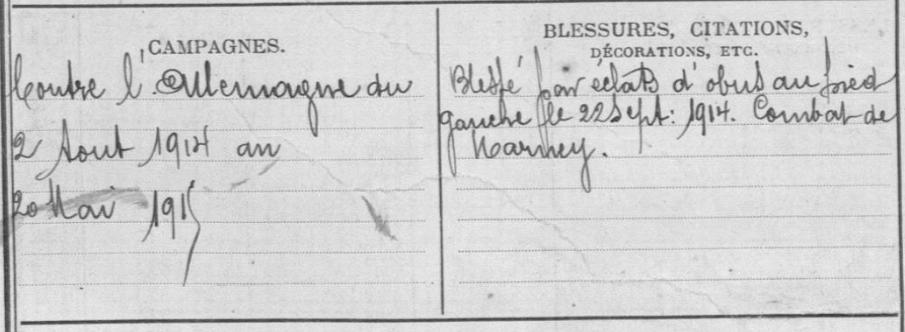 CAMPAGNES.
Contre l'Allemagne du
2 Aout 1914 au
20 Mai 1915
BLESSURES, CITATIONS,
DÉCORATIONS, ETC.
Blessé par éclats d'obus au pied
gauche le 22 Sept: 1914. Combat de